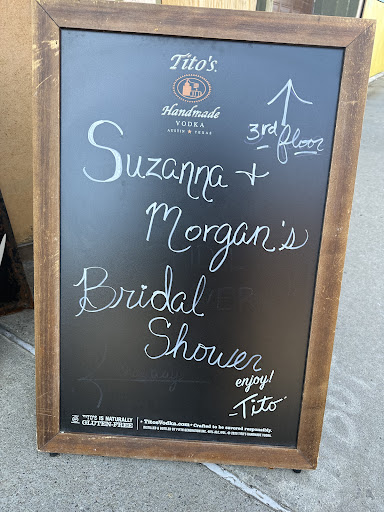 Tito's
Handmade
VODKA
AUSTIN ★ TEXAS
3rd floor
Suzanna +
Morgan's
Bridal
Shower
enjoy!
-Tito
TITO'S IS NATURALLY
GLUTEN-FREE
• TitosVodka.com • Crafted to be savored responsibly.